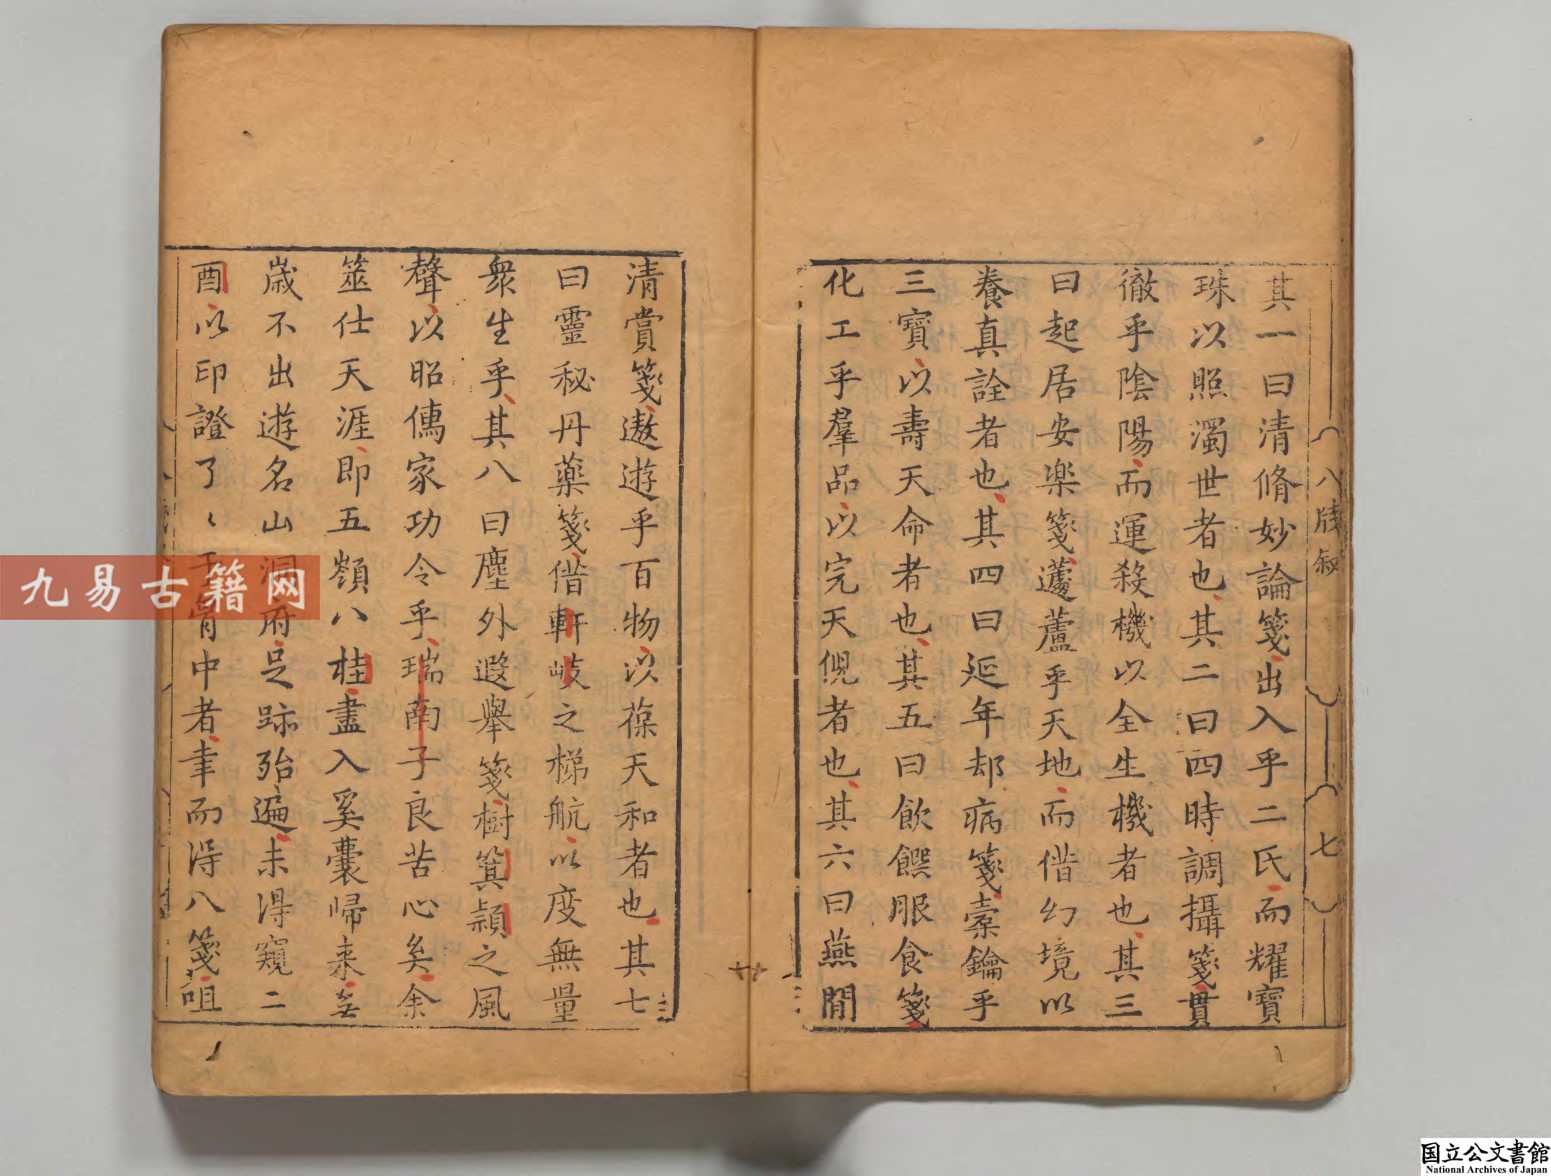 其一曰清脩妙論箋出入乎二氏而耀寶
珠以照濁世者也其二曰四時調攝箋貫
徹乎陰陽而運殺機以全生機者也其三
曰起居安楽箋蘧蘆乎天地而偕幻境以
養真詮者也其四曰延年却病箋橐鑰乎
三寶以壽天命者也其五曰飲饌服食箋
化工乎羣品以完天倪者也其六曰燕閒
清賞箋遨遊乎百物以葆天和者也其七
曰靈秘丹藥箋偕軒岐之梯航以度無量
衆生乎其八曰塵外遐舉箋樹箕潁之風
聲以昭傳家功令乎瑞南子良苦心矣余
筮仕天涯即五嶺八桂盡入奚囊歸来
歳不出遊名山洞府足跡殆遍未得窺二
酉以印證了〻于胷中者幸而得八箋咀
八牋叙
七
九易古籍网
国立公文書館
National Archives of Japan